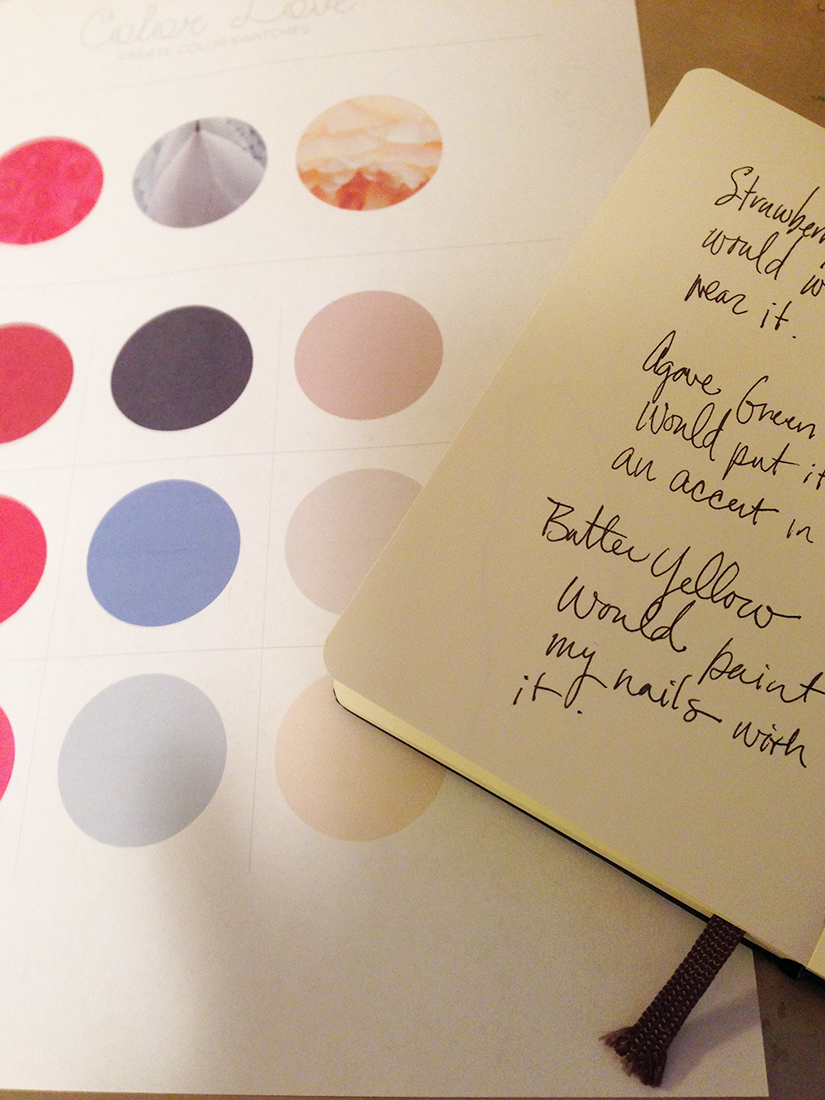 Color Love
CREATE COLOR SWATCHES
would
wear it.
Agave Green
Would put it
an accent in
Butter Yellow
Would paint
my nails with
it.